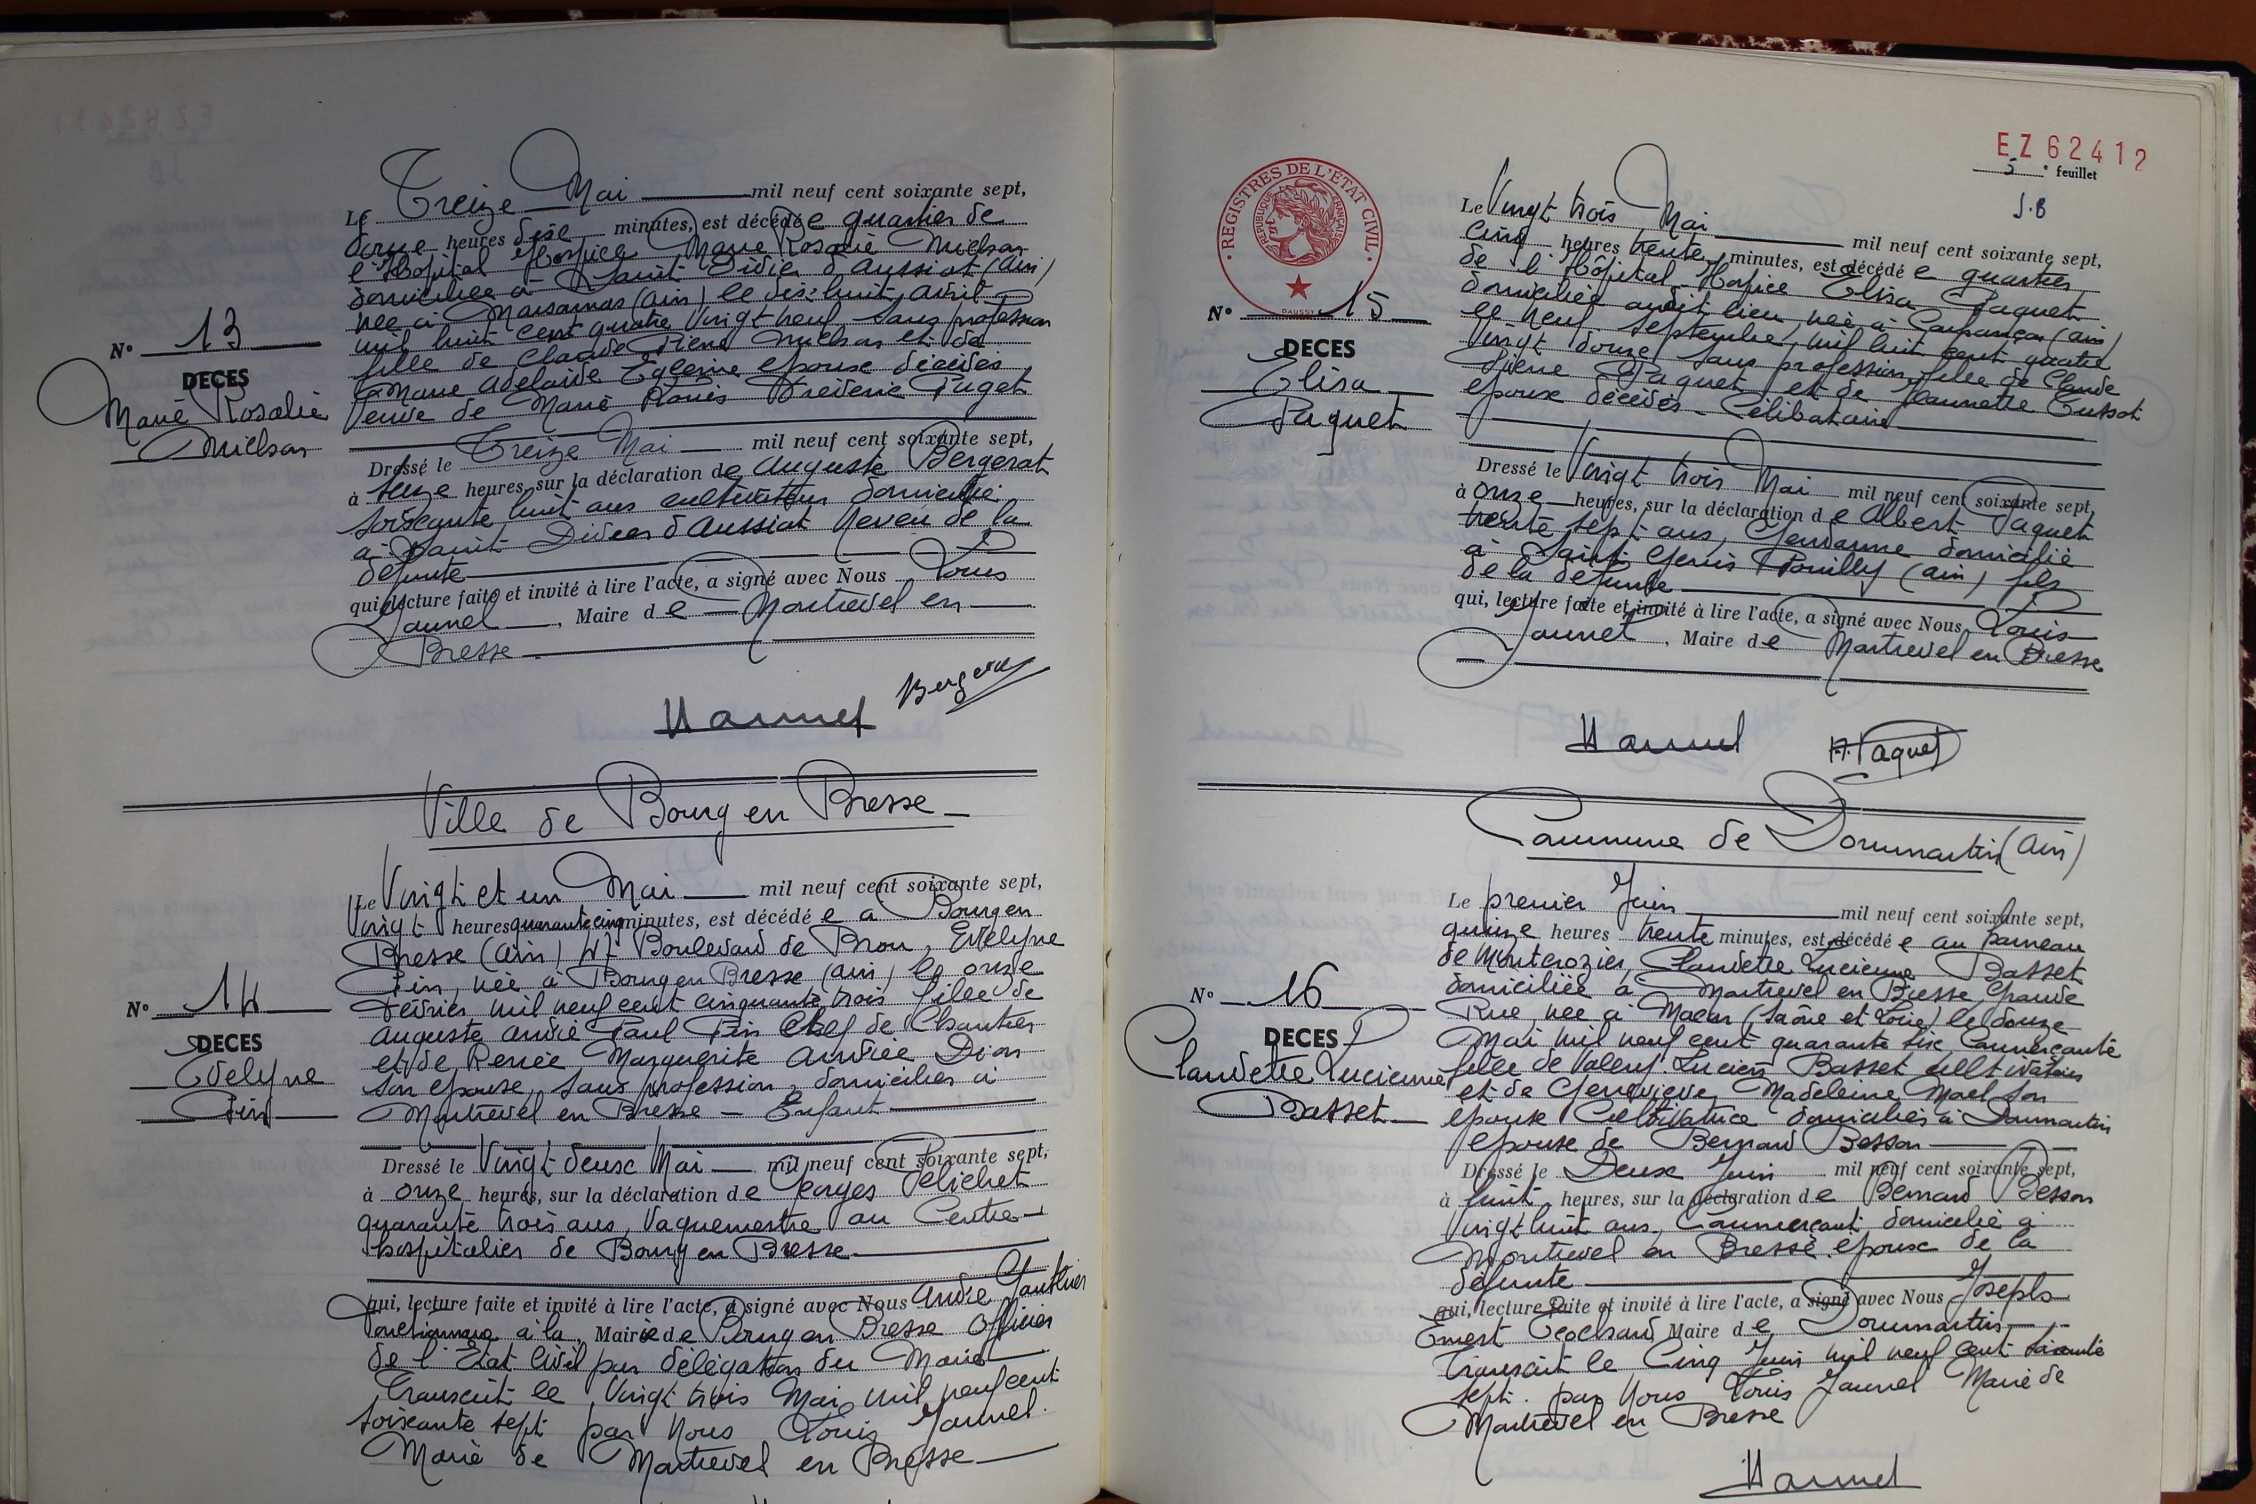 Le Treize Mai mil neuf cent soixante sept,
heures dix minutes, est décédée quartier de
l'Hôpital Hospice Marie Rosalie Michon
domiciliée à Saint Didier d'Aussiat (Ain)
née à Marsonnas (Ain) le dix-huit avril
mil huit cent quatre vingt neuf sans profession
fille de Claude Pierre Michon et de
Marie Adelaïde épouse décédés
Veuve de Marie Frédéric Puget
N° 13
DECES
Marie Rosalie
Michon
Dressé le Treize Mai mil neuf cent soixante sept,
à seize heures, sur la déclaration de Auguste Bergerat
soixante huit ans cultivateur domicilié
à Saint Didier d'Aussiat Neveu de la
défunte
qui, lecture faite et invité à lire l'acte, a signé avec Nous Louis
Jaunel, Maire de Montrevel en
Bresse
Ville de Bourg en Bresse
Le Vingt et un Mai mil neuf cent soixante sept,
Vingt heures quarante cinq minutes, est décédée à Bourg en
Bresse (Ain) 47 Boulevard de Brou, Evelyne
Pin, née à Bourg en Bresse (Ain) le onze
Février mil neuf cent cinquante trois fille de
Auguste André Paul Pin Chef de Chantier
et de Renée Marguerite Andrée Dion
son épouse, sans profession, domiciliés à
Montrevel en Bresse - Enfant
N° 14
DECES
Evelyne
Pin
Dressé le Vingt deux Mai mil neuf cent soixante sept,
à onze heures, sur la déclaration de Georges Pelichet
quarante trois ans, Vaguemestre au Centre
hospitalier de Bourg en Bresse
qui, lecture faite et invité à lire l'acte, a signé avec Nous André Gauthier
Fonctionnaire à la Mairie de Bourg en Bresse Officier
de l'Etat Civil par délégation du Maire
Transcrit le Vingt trois Mai mil neuf cent
soixante sept par Nous Louis Jaunel
Maire de Montrevel en Bresse
EZ 62412
5e feuillet
J.B
REGISTRES DE L'ÉTAT CIVIL
RÉPUBLIQUE FRANÇAISE
DAUSSY
Le Vingt trois Mai mil neuf cent soixante sept,
cinq heures trente minutes, est décédée quartier
de l'Hôpital Hospice Elisa Paquet
domiciliée audit lieu, née à (Ain)
le neuf septembre mil huit cent quatre
Vingt douze sans profession, fille de Claude
Pierre Paquet et de Jeannette
épouse décédés - Célibataire
N° 15
DECES
Elisa
Paquet
Dressé le Vingt trois Mai mil neuf cent soixante sept,
à onze heures, sur la déclaration de Albert Paquet
trente sept ans, Gendarme domicilié
à Saint Genis Pouilly (Ain) fils
de la défunte
qui, lecture faite et invité à lire l'acte, a signé avec Nous Louis
Jaunel, Maire de Montrevel en Bresse
A. Paquet
Commune de Dommartin (Ain)
Le premier Juin mil neuf cent soixante sept,
quinze heures trente minutes, est décédée au hameau
de Montcrozier, Claudette Lucienne Basset
domiciliée à Montrevel en Bresse, Grande
Rue, née à Macon (Saône et Loire) le douze
Mai mil neuf cent quarante six, Commerçante
fille de Valery Lucien Basset cultivateur
et de Geneviève Madeleine Morel son
épouse Cultivatrice domiciliés à Dommartin
épouse de Bernard Besson
N° 16
DECES
Claudette Lucienne
Basset
Dressé le Deux Juin mil neuf cent soixante sept,
à huit heures, sur la déclaration de Bernard Besson
Vingt huit ans, Commerçant domicilié à
Montrevel en Bresse, époux de la
défunte
qui, lecture faite et invité à lire l'acte, a signé avec Nous Joseph
Ernest Maire de Dommartin
Transcrit le Cinq Juin mil neuf cent soixante
sept. par Nous Louis Jaunel Maire de
Montrevel en Bresse